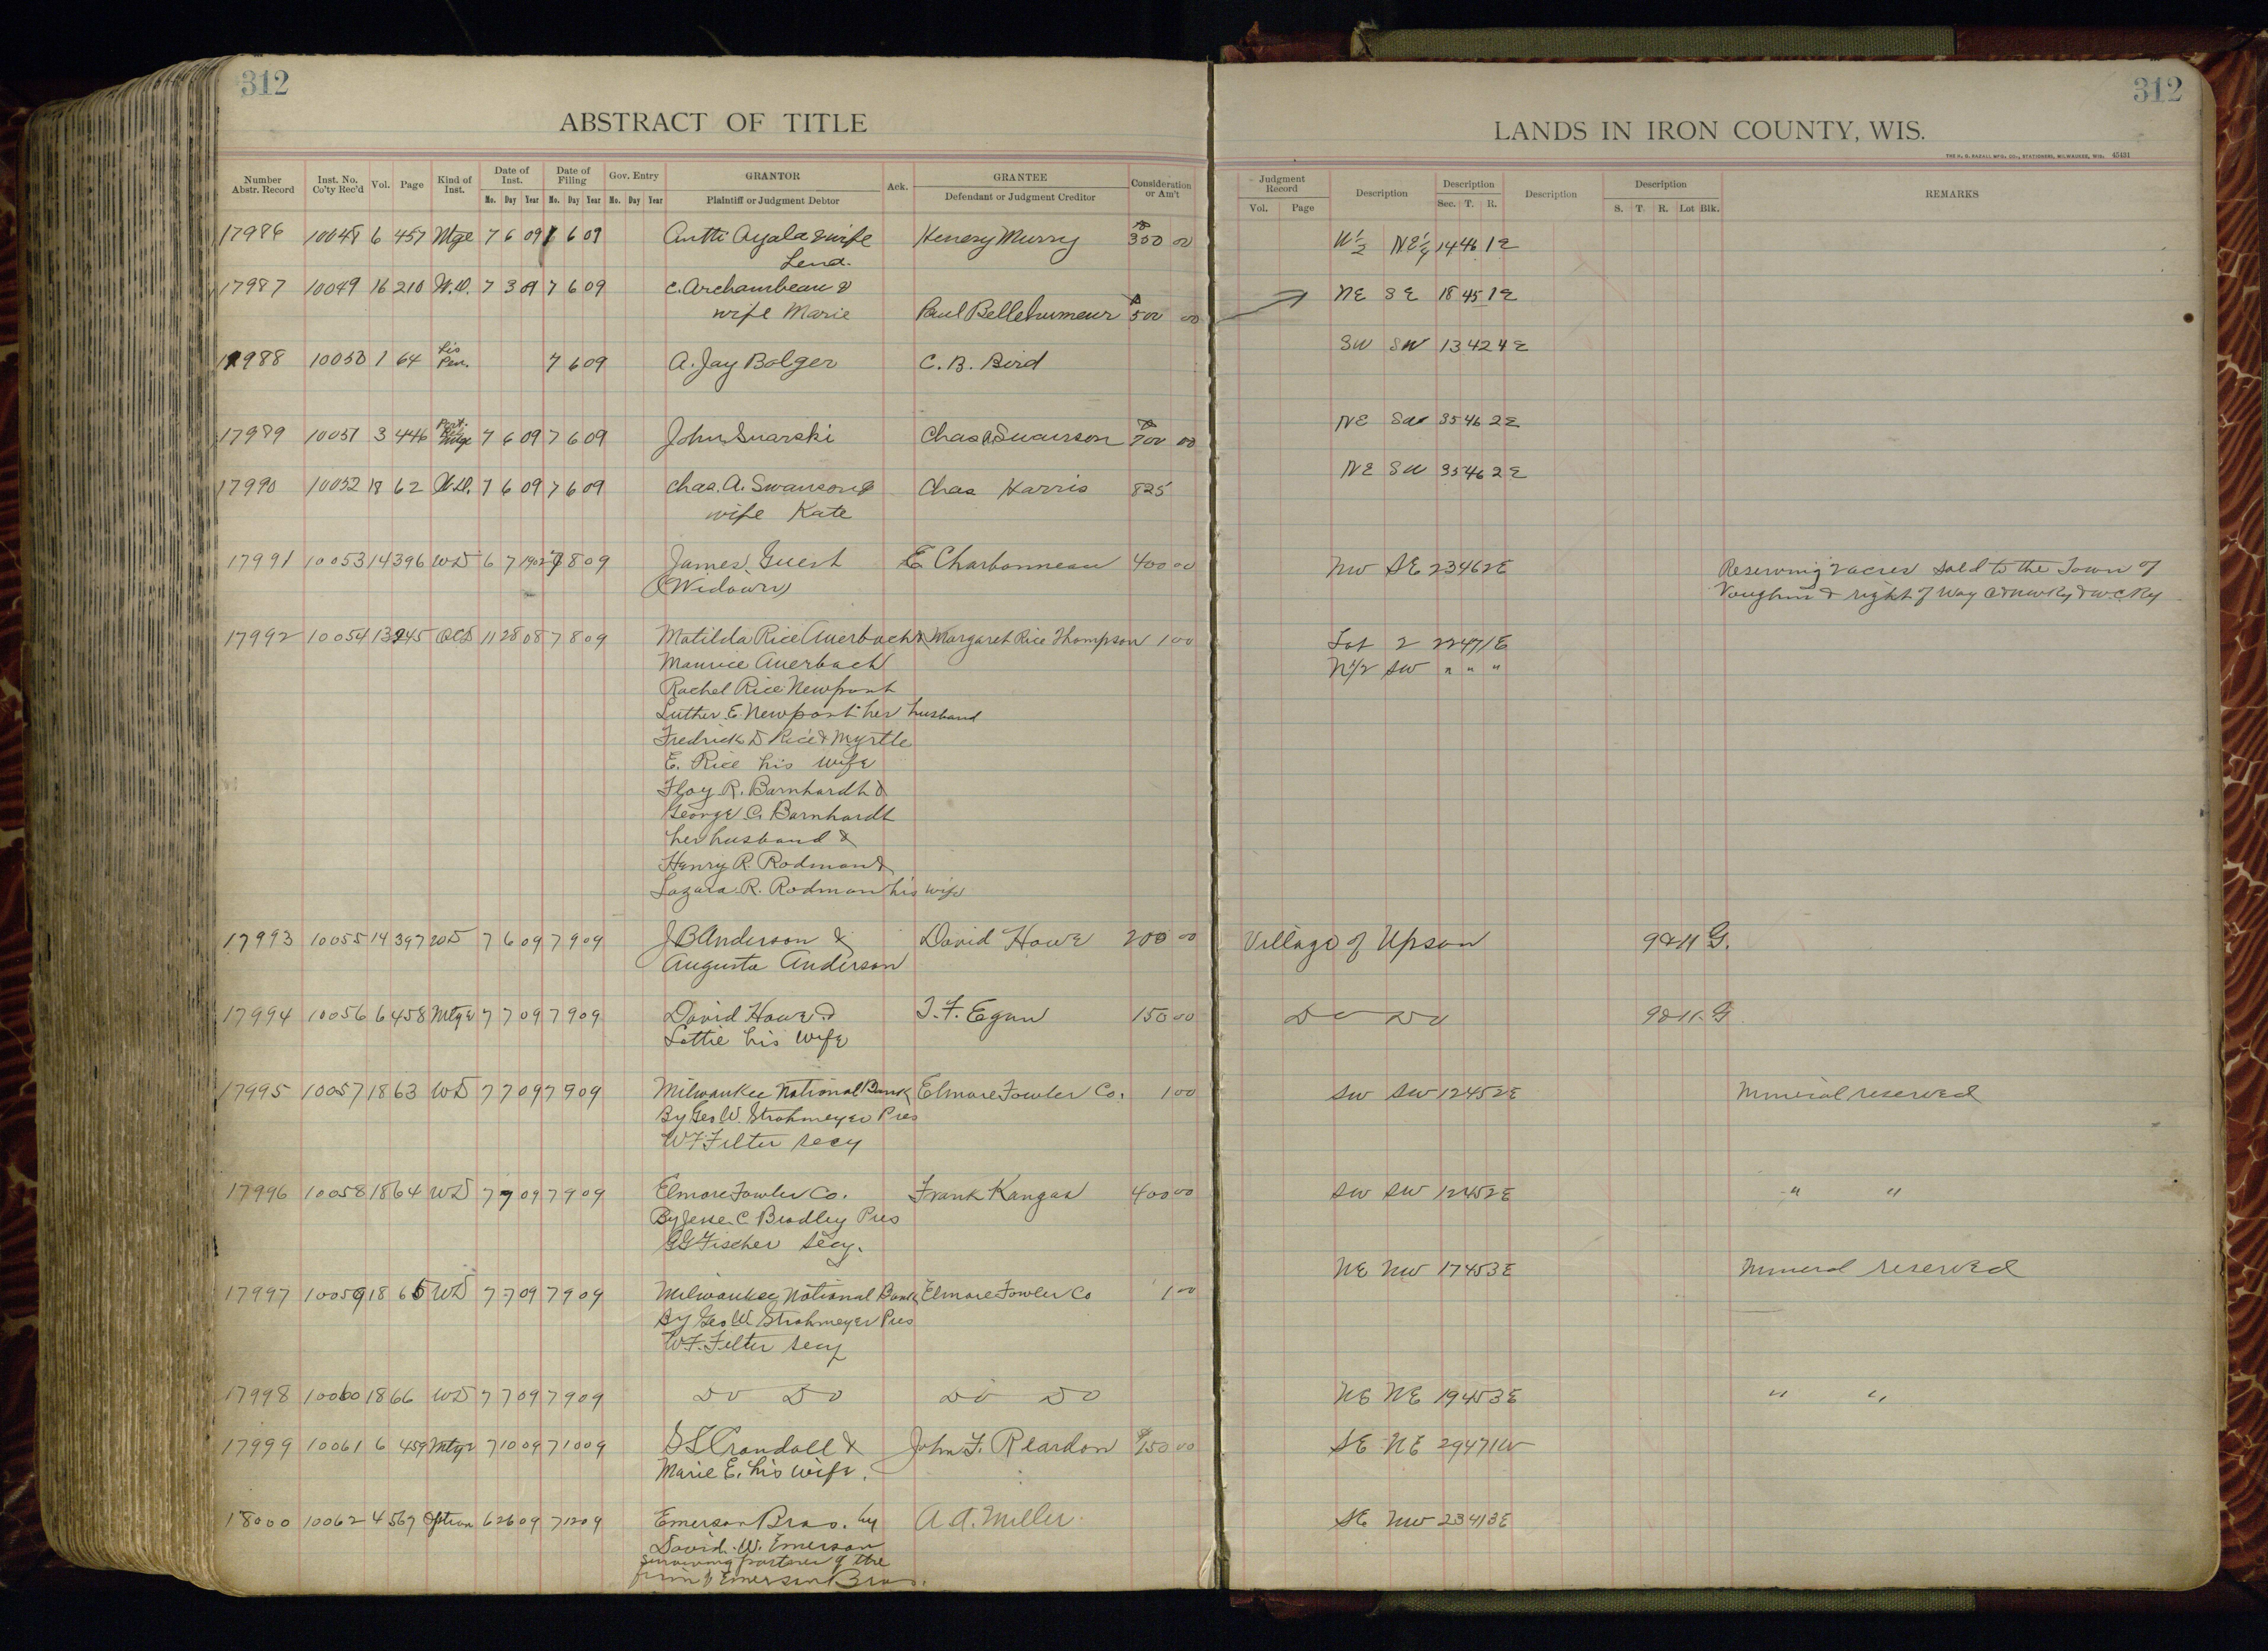 312
ABSTRACT OF TITLE
Number Abstr. Record Inst. No. Co'ty Rec'd Vol. Page Kind of Inst. Date of Inst. Mo. Day Year Date of Filing Mo. Day Year Gov. Entry Mo. Day Year GRANTOR Plaintiff or Judgment Debtor Ack. GRANTEE Defendant or Judgment Creditor Consideration or Am't
17986 10048 6 457 Mtge 7 6 09 7 6 09 Antti Ayala & wife Henery Murry 300 00
Lena.
17987 10049 16 210 W.D. 7 3 09 7 6 09 C. Archambeau &
wife Marie Paul Bellehumeur 500 00
17988 10050 1 64 Lis Pen. 7 6 09 A. Jay Bolger C. B. Bird
17989 10051 3 446 Mtge 7 6 09 7 6 09 John Snarski Chas A Swanson 700 00
17990 10052 18 62 W.D. 7 6 09 7 6 09 Chas. A. Swanson & Chas Harris 825
wife Kate
17991 10053 14 396 WD 6 7 1902 7 8 09 James Guest E Charbonneau 400 00
(Widower)
17992 10054 13 245 QCD 11 28 08 7 8 09 Matilda Rice Auerbach & Margaret Rice Thompson 1 00
Maurice Auerbach
Rachel Rice Newport
Luther E. Newport her husband
Fredrick D Rice & Myrtle
E. Rice his wife
Floy R. Barnhardt &
George C. Barnhardt
her husband &
Henry R. Rodman &
Lazara R. Rodman his wife
17993 10055 14 397 WD 7 6 09 7 9 09 J B Anderson & David Howe 200 00
Augusta Anderson
17994 10056 6 458 Mtge 7 7 09 7 9 09 David Howe & T. F. Egan 150 00
Lottie his wife
17995 10057 18 63 WD 7 7 09 7 9 09 Milwaukee National Bank Elmore Fowler Co. 1 00
By Geo W. Strohmeyer Pres
W F Filter secy
17996 10058 18 64 WD 7 7 09 7 9 09 Elmore Fowler Co. Frank Kangas 400 00
By Jesse C Bradley Pres
G G Fischer Secy.
17997 10059 18 65 WD 7 7 09 7 9 09 Milwaukee National Bank Elmore Fowler Co 1 00
By Geo W. Strohmeyer Pres
W.F. Filter secy
17998 10060 18 66 WD 7 7 09 7 9 09 Do Do Do Do
17999 10061 6 459 Mtge 7 10 09 7 10 09 S L Crandall & John F. Reardon $150 00
Marie E. his wife.
18000 10062 4 567 Option 6 26 09 7 12 09 Emerson Bros. by A. A. Miller.
David W. Emerson
surviving partner of the
firm of Emerson Bros.
312
LANDS IN IRON COUNTY, WIS.
THE H. G. RAZALL MFG. CO., STATIONERS, MILWAUKEE, WIS. 45431
Judgment Record Vol. Page Description Description Sec. T. R. Description Description S. T. R. Lot Blk. REMARKS
W 1/2 NE 1/4 14 46 1 E
NE SE 18 45 1 E
SW SW 13 42 4 E
NE SW 35 46 2 E
NE SW 35 46 2 E
NW SE 23 46 2 E Reserving 2 acres sold to the Town of
Vaughn & right of way C&NW Ry & W C Ry
Lot 2 22 47 1 E
N 1/2 SW " " "
Village of Upson 9 & 11 G.
Do Do 9 & 11. G
SW SW 12 45 2 E Mineral reserved
SW SW 12 45 2 E " "
NE NW 17 45 3 E Mineral reserved
NE NE 19 45 3 E " "
SE NE 29 47 1 W
SE NW 23 41 3 E